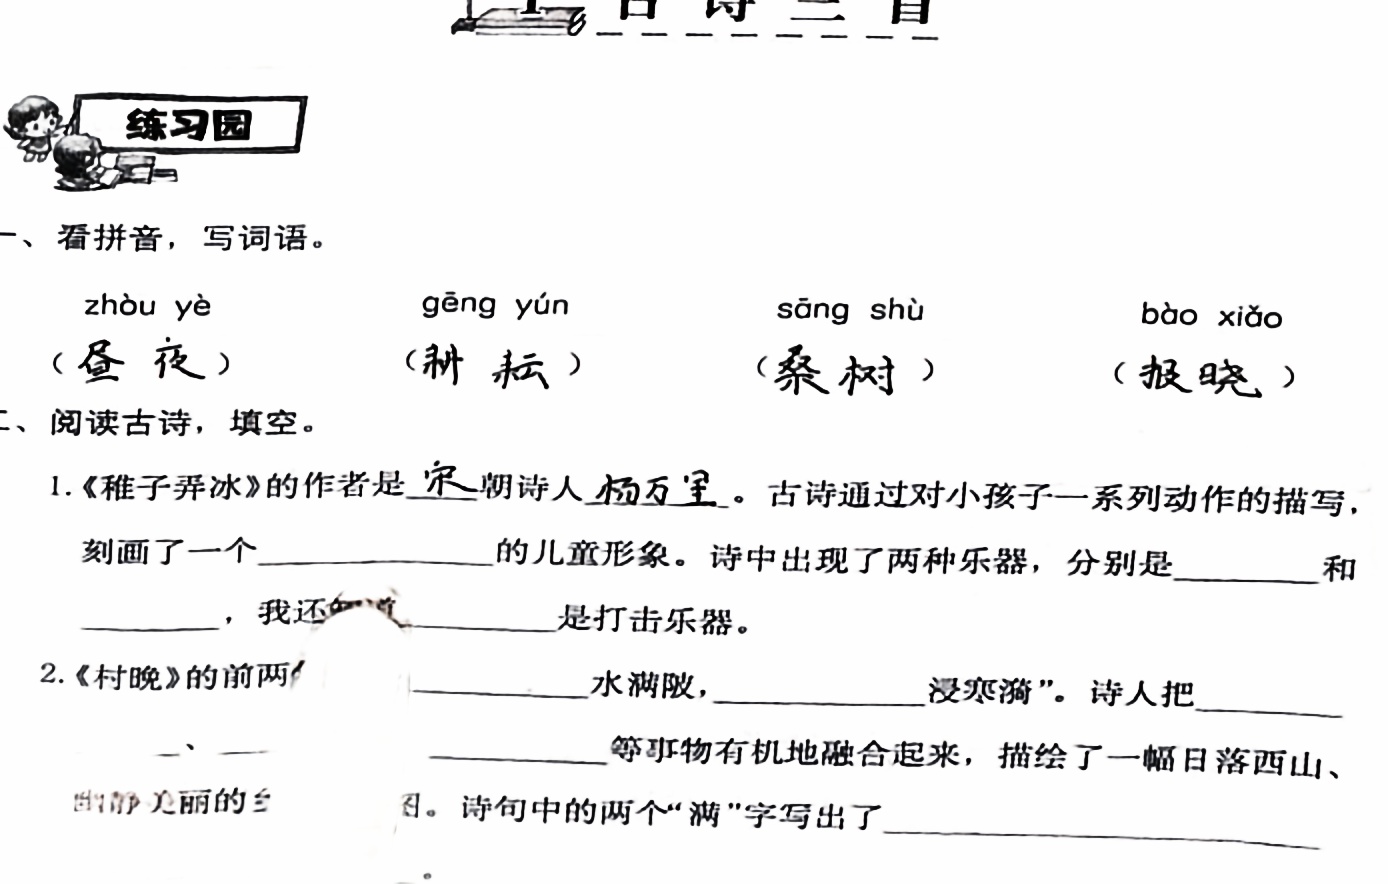 1 古诗三首
练习园
一、看拼音，写词语。
zhòu yè gēng yún sāng shù bào xiǎo
（昼夜）（耕耘）（桑树）（报晓）
二、阅读古诗，填空。
1.《稚子弄冰》的作者是宋朝诗人杨万里。古诗通过对小孩子一系列动作的描写，
刻画了一个______的儿童形象。诗中出现了两种乐器，分别是______和
______，我还知道______是打击乐器。
2.《村晚》的前两______水满陂，______浸寒漪”。诗人把______
______、____________等事物有机地融合起来，描绘了一幅日落西山、
幽静美丽的 图。诗句中的两个“满”字写出了______
______。